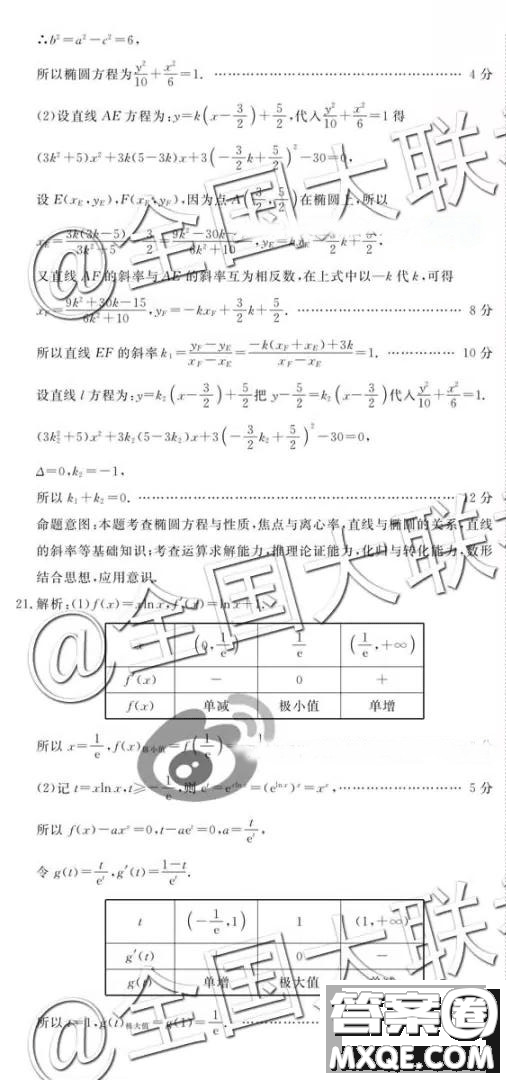 ∴b²=a²−c²=6,
所以椭圆方程为y²/10+x²/6=1. …… 4 分
(2)设直线 AE 方程为:y=k(x−3/2)+5/2,代入y²/10+x²/6=1 得
(3k²+5)x²+3k(5−3k)x+3(−3/2k+5/2)²−30=0,
设 E(xE,yE),F(xF,yF),因为点 A(3/2,5/2)在椭圆上,所以
又直线 AF的斜率与AE 的斜率互为相反数,在上式中以−k 代 k,可得
xF=(9k²+30k−15)/(6k²+10),yF=−kxF+3/2k+5/2. …… 8 分
所以直线 EF 的斜率 k₁=(yF−yE)/(xF−xE)=(−k(xF+xE)+3k)/(xF−xE)=1. …… 10 分
设直线 l 方程为:y=k₂(x−3/2)+5/2把 y−5/2=k₂(x−3/2)代入y²/10+x²/6=1.
(3k₂²+5)x²+3k₂(5−3k₂)x+3(−3/2k₂+5/2)²−30=0,
Δ=0,k₂=−1,
所以 k₁+k₂=0. …… 12 分
命题意图:本题考查椭圆方程与性质,焦点与离心率,直线与椭圆的关系,直线
的斜率等基础知识;考查运算求解能力,推理论证能力,化归与转化能力,数形
结合思想,应用意识.
21.解析:(1)f(x)=xlnx,f′(x)=lnx+1,
x (0,1/e) 1/e (1/e,+∞)
f′(x) − 0 +
f(x) 单减 极小值 单增
所以 x=1/e,f(x)极小值=f(1/e)=
(2)记 t=xlnx,t≥−1/e,则 eᵗ=e^(xlnx)=(e^(lnx))ˣ=xˣ,…… 5 分
所以 f(x)−axˣ=0,t−aeᵗ=0,a=t/eᵗ,
令 g(t)=t/eᵗ,g′(t)=(1−t)/eᵗ.
t (−1/e,1) 1 (1,+∞)
g′(t) 0 −
g(t) 单增 极大值
所以 t=1,g(t)极大值=g(1)=1/e. ……
@全国大联
@全国大联
@全国大联
答案圈
MXQE.COM